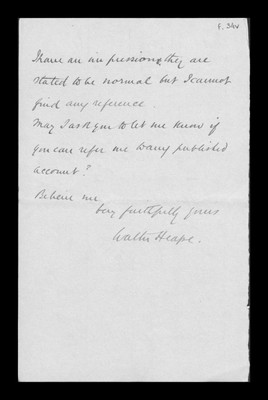 F. 34v
I have an impression they are
stated to be normal but I cannot
find any reference.
May I ask you to let me know if
you can refer me to any published
account?
Believe me
Very faithfully yours
Walter Heape.